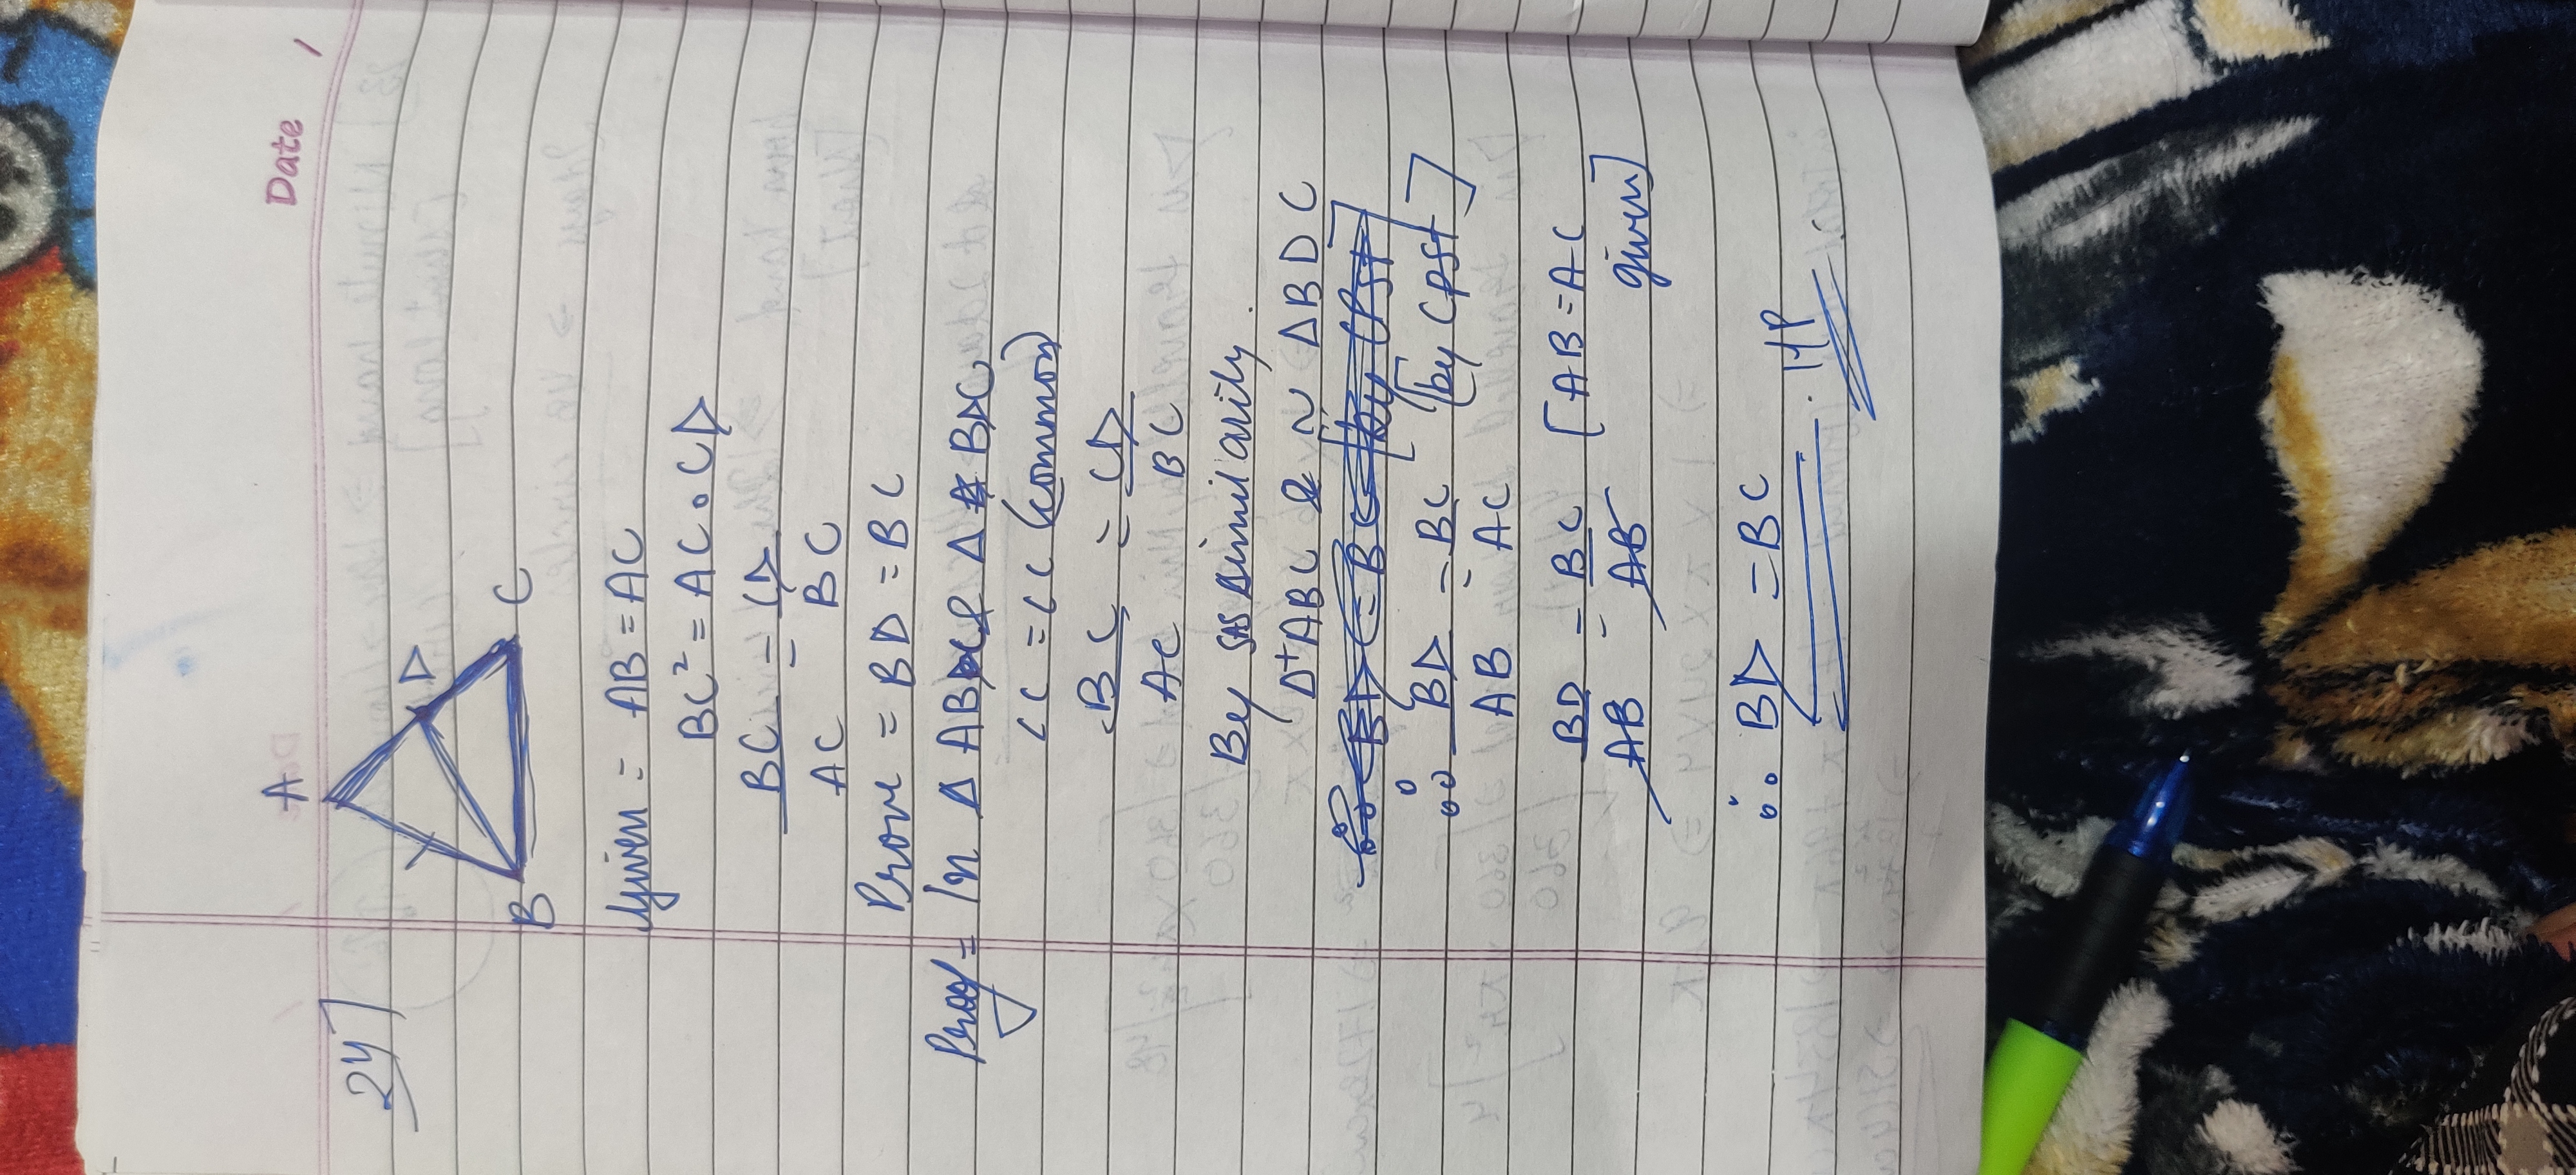 Date /
24]
A
D
B C
Given = AB = AC
BC² = AC . CD
BC = CD
AC BC
Prove = BD = BC
Proof = In Δ ABC & Δ BDC
∠C = ∠C (common)
BC = CD
AC BC
By SAS similarity
Δ ABC ~ Δ BDC
∴ BD = BC [by CPST]
AB AC
BD = BC [AB = AC
AB AB given]
∴ BD = BC
HP